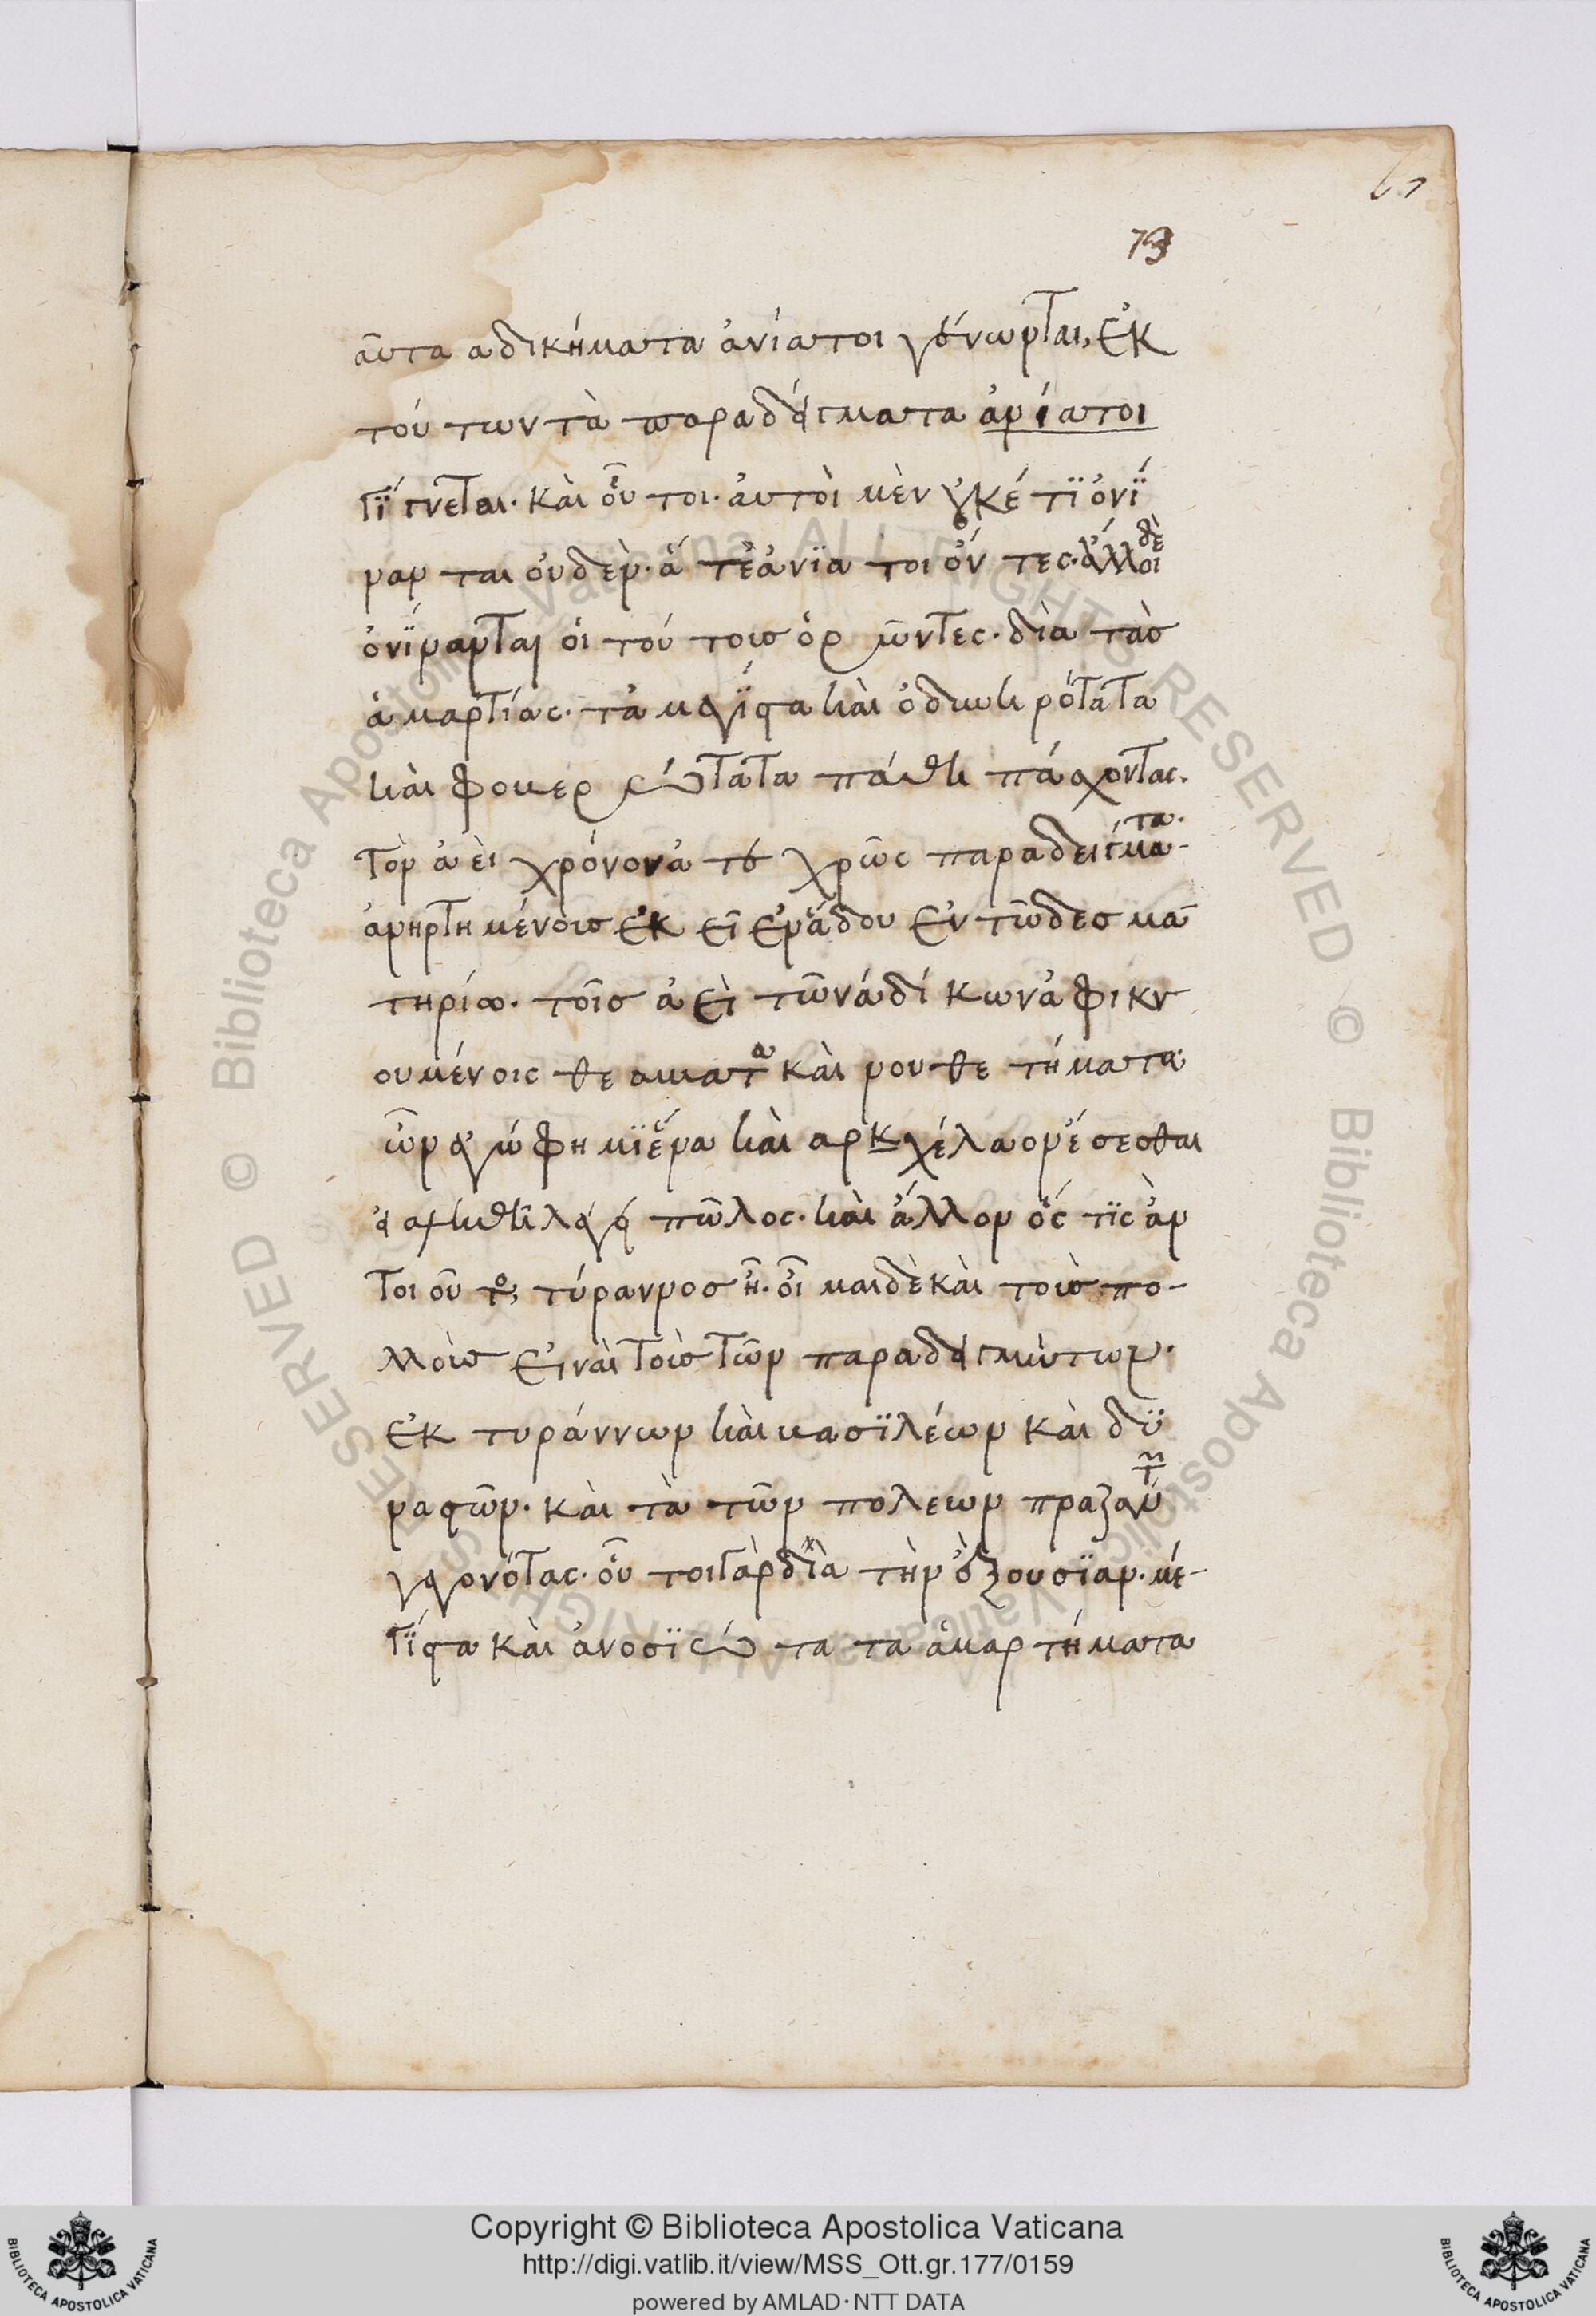 67
73
αῦτα αδικήματα ἀνίατοι γένωνται, ἐκ
τού των τὰ παραδείγματα ἀνίατοι
γΐγνεται. καὶ οὗ τοι. ἀυτοὶ μὲν οὐκέ τϊ ὀνΐ
ναν ται οὐδεν. ἅ τε ἀνϊα τοι ὄν τες. ἄλλοι δὲ
ὀνΐνανται οἱ τού τους ὁρ ῶντες. δϊὰ τὰσ
ἁμαρτίας. τὰ μεγΐστα καὶ ὀδυνη ρότατα
καὶ φοβερ ώτατα πάθη πάσχοντας.
τὸν ἀ εὶ χρόνον ἀ τε χνῶς παραδείγματα.
ανηρτη μένουσ ἐκ εῖ ἐν ἅδου ἐν τῶ δεσ μω
τηρίω. τοῖσ ἀ εὶ τῶν ἀδί κων ἀ φικν
ουμένοις θε αματα καὶ νουθε τήματα
ῶν εγώ φη μϊ ἕνα καὶ αρκχέλαον ἔσεσθαι
εἰ αληθῆ λέγει πῶλος. καὶ ἄλλον ὅς τϊς ἀν
τοι οῦ τος τύραννοσ ῆ. οἶ μαι δὲ καὶ τοὺσ πο-
λλοὺσ εἰναὶ τοὺσ τῶν παραδειγμάτων.
ἐκ τυράννων καὶ βασϊλέων καὶ δϋ
ναστῶν. καὶ τὰ τῶν πολεων πραξαντ
γεγονότας. οὗ τοι γὰρ δϊὰ τὴν ἐξουσϊαν. μέ-
γΐστα καὶ ἀνοσϊώ τα τα ἁμαρ τήματα
Copyright © Biblioteca Apostolica Vaticana
http://digi.vatlib.it/view/MSS_Ott.gr.177/0159
powered by AMLAD·NTT DATA